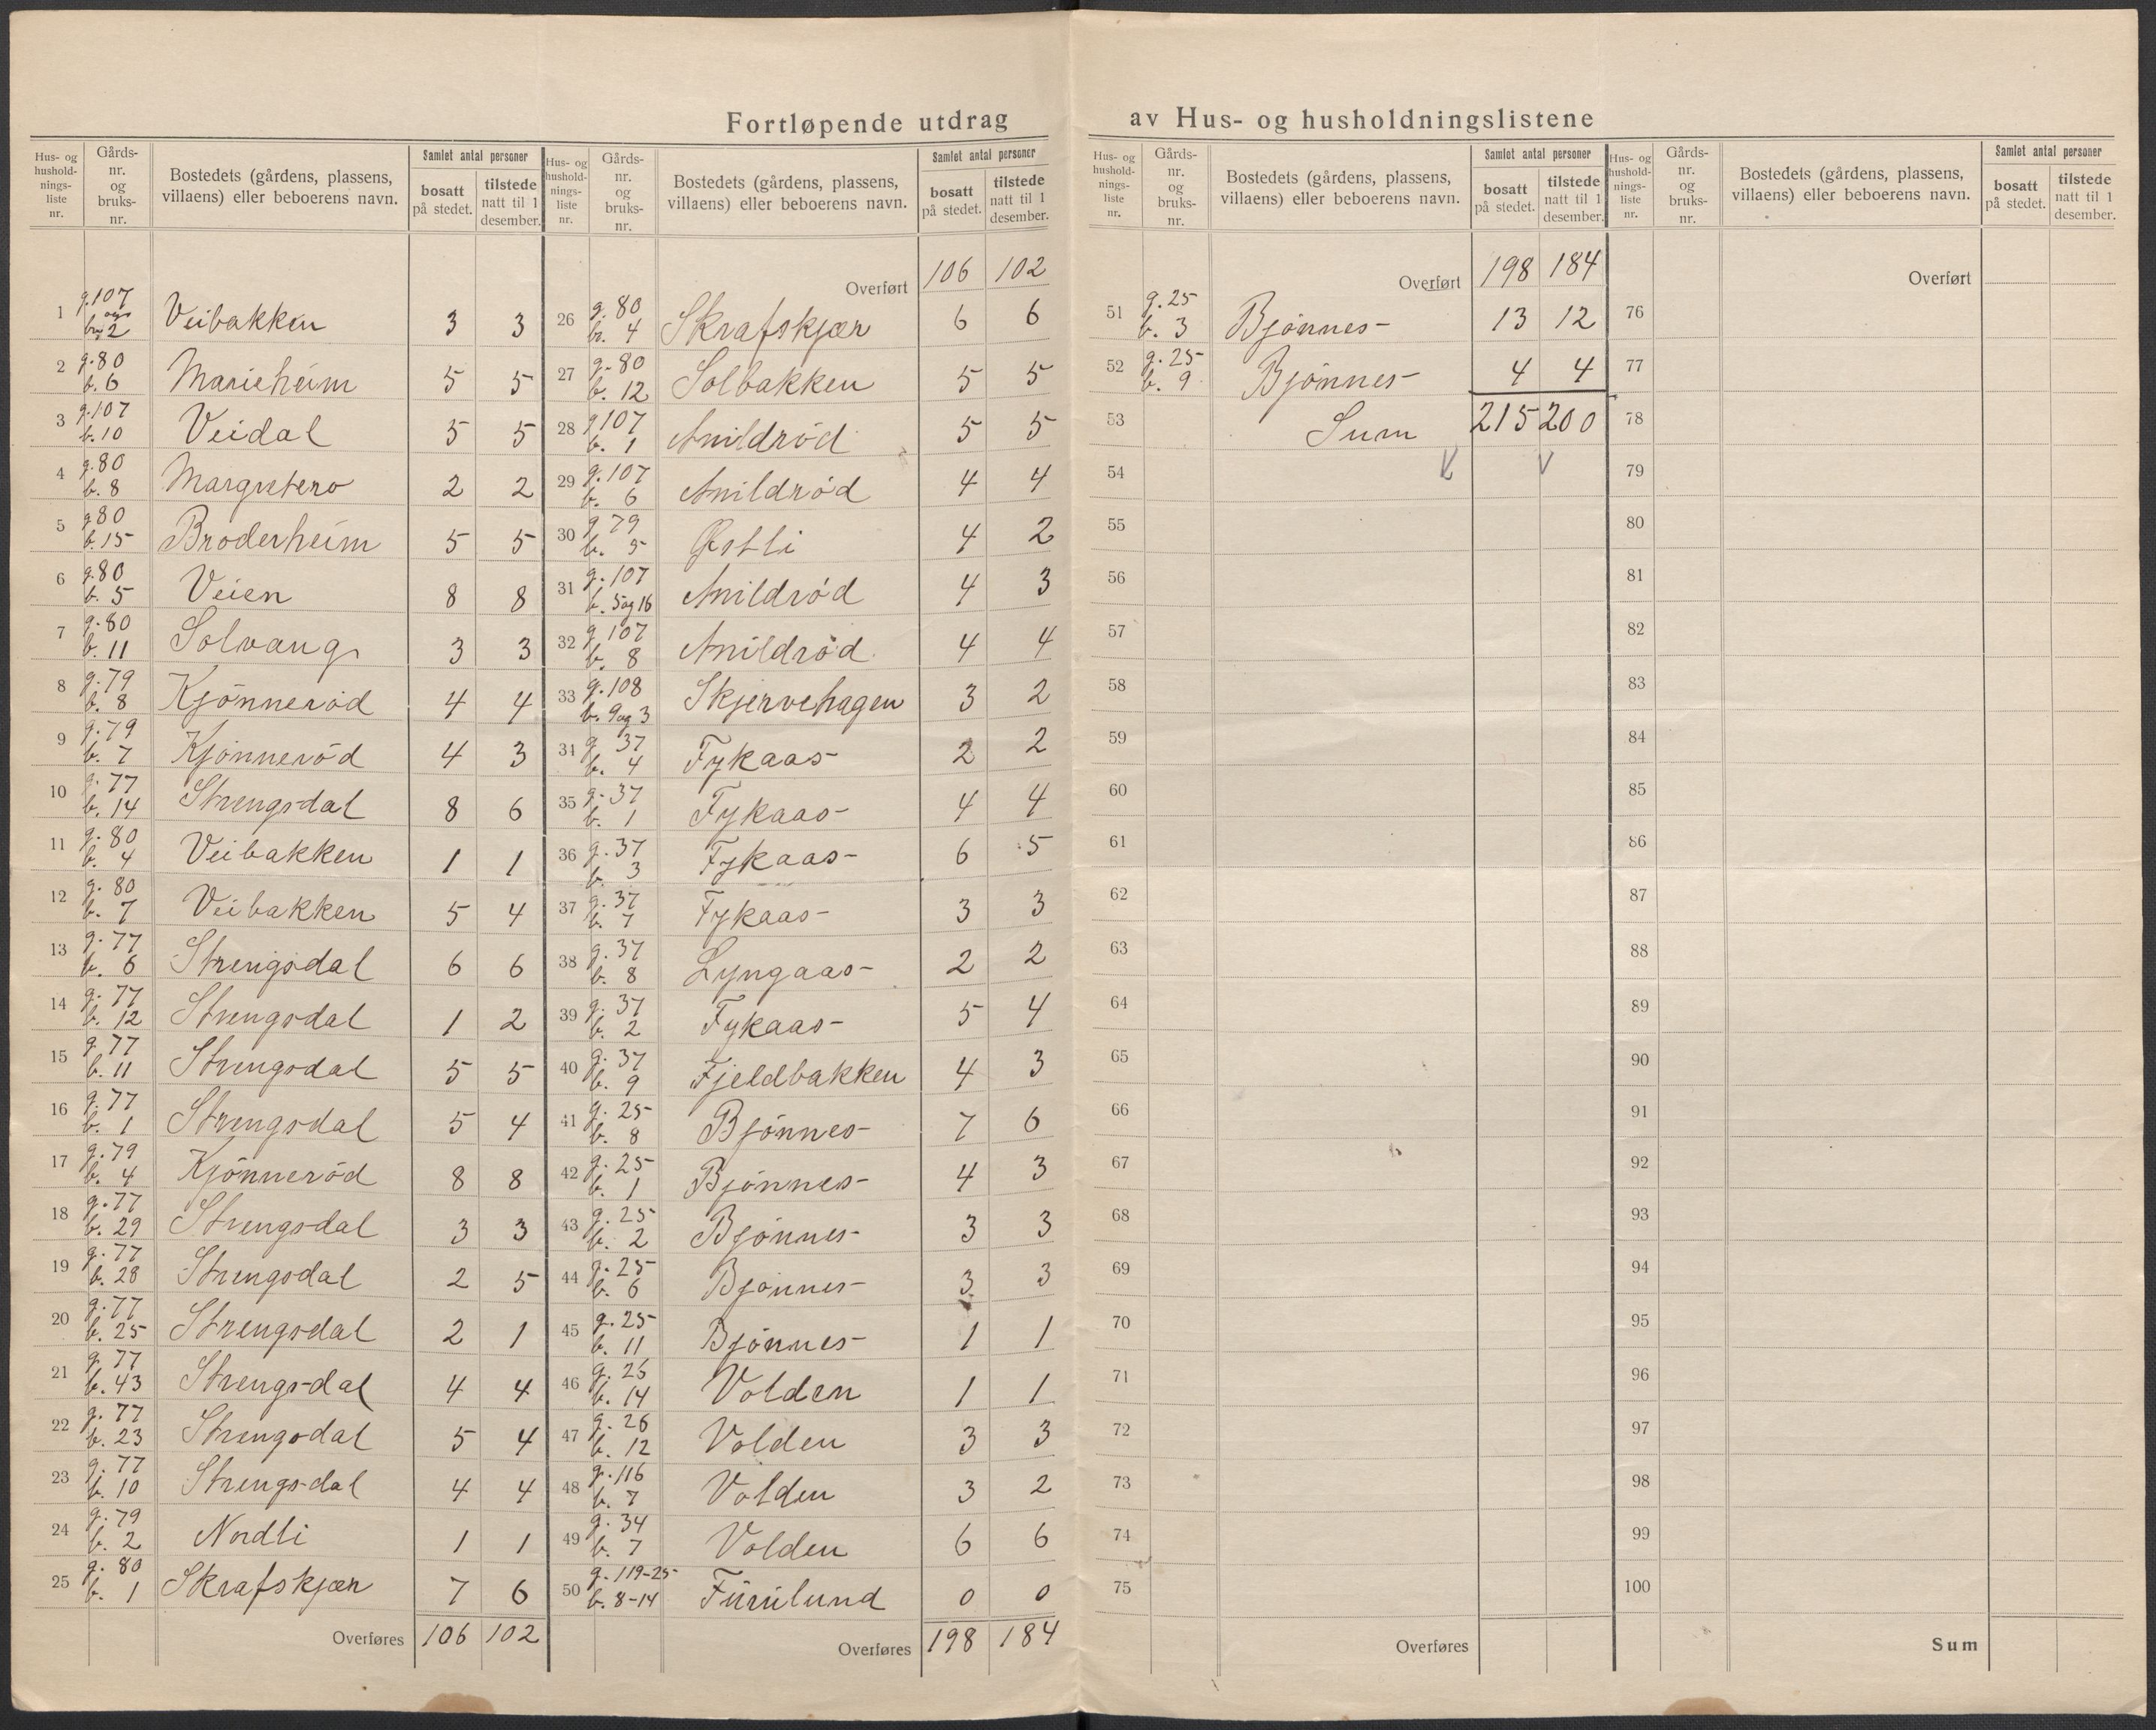 Fortløpende utdrag av Hus- og husholdningslistene
Hus- og hushold-nings-liste nr. | Gårds-nr. og bruks-nr. | Bostedets (gårdens, plassens, villaens) eller beboerens navn. | Samlet antal personer | bosatt på stedet. | tilstede natt til 1 desember.
1 g. 107 b. 2 Veibakken 3 3
2 g. 80 b. 6 Marieheim 5 5
3 g. 107 b. 10 Veidal 5 5
4 g. 80 b. 8 Margretero 2 2
5 g 80 b. 15 Broderheim 5 5
6 g. 80 b. 5 Veien 8 8
7 g. 80 b. 11 Solvang 3 3
8 g. 79 b. 8 Kjønnerød 4 4
9 g. 79 b. 7 Kjønnerød 4 3
10 g. 77 b. 14 Strengsdal 8 6
11 g. 80 b. 4 Veibakken 1 1
12 g. 80 b. 7 Veibakken 5 4
13 g. 77 b. 6 Strengsdal 6 6
14 g. 77 b. 12 Strengsdal 1 2
15 g. 77 b. 11 Strengsdal 5 5
16 g. 77 b. 1 Strengsdal 5 4
17 g. 79 b. 4 Kjønnerød 8 8
18 g. 77 b. 29 Strengsdal 3 3
19 g. 77 b. 28 Strengsdal 2 5
20 g. 77 b. 25 Strengsdal 2 1
21 g. 77 b. 43 Strengsdal 4 4
22 g. 77 b. 23 Strengsdal 5 4
23 g. 77 b. 10 Strengsdal 4 4
24 g. 79 b. 2 Nordli 1 1
25 g. 80 b. 1 Skrafskjær 7 6
Overføres 106 102
Hus- og hushold-nings-liste nr. | Gårds-nr. og bruks-nr. | Bostedets (gårdens, plassens, villaens) eller beboerens navn. | Samlet antal personer | bosatt på stedet. | tilstede natt til 1 desember.
Overført 106 102
26 g. 80 br. 4 Skrafskjær 6 6
27 g. 80 b. 12 Solbakken 5 5
28 g 107 b. 1 Anildrød 5 5
29 g. 107 b. 6 Anildrød 4 4
30 g 79 b. 5 Østli 4 2
31 g. 107 b. 5 og 16 Anildrød 4 3
32 g 107 b. 8 Anildrød 4 4
33 g. 108 b. 9 og 3 Skjervehagen 3 2
34 g 37 b. 4 Fykaas 2 2
35 g. 37 b. 1 Fykaas 4 4
36 g. 37 b. 3 Fykaas 6 5
37 g. 37 b. 7 Fykaas 3 3
38 g. 37 b. 8 Lyngaas 2 2
39 g. 37 b. 2 Fykaas 5 4
40 g. 37 b. 9 Fjeldbakken 4 3
41 g. 25 b. 8 Bjønnes 7 6
42 g. 25 b. 1 Bjønnes 4 3
43 g. 25 b. 2 Bjønnes 3 3
44 g. 25 b. 6 Bjønnes 3 3
45 g. 25 b. 11 Bjønnes 1 1
46 b. 14 Volden 1 1
47 g. 26 b. 12 Volden 3 3
48 g. 116 b. 7 Volden 3 2
49 g. 34 b. 7 Volden 6 6
50 g. 119-25 b. 8-14 Furulund 0 0
Overføres 198 184
Hus- og hushold-nings-liste nr. | Gårds-nr. og bruks-nr. | Bostedets (gårdens, plassens, villaens) eller beboerens navn. | Samlet antal personer | bosatt på stedet. | tilstede natt til 1 desember.
Overført 198 184
51 g. 25 b. 3 Bjønnes 13 12
52 g. 25 b. 9 Bjønnes 4 4
53 Sum 215 200
54
55
56
57
58
59
60
61
62
63
64
65
66
67
68
69
70
71
72
73
74
75
Overføres
Hus- og hushold-nings-liste nr. | Gårds-nr. og bruks-nr. | Bostedets (gårdens, plassens, villaens) eller beboerens navn. | Samlet antal personer | bosatt på stedet. | tilstede natt til 1 desember.
Overført
76
77
78
79
80
81
82
83
84
85
86
87
88
89
90
91
92
93
94
95
96
97
98
99
100
Sum